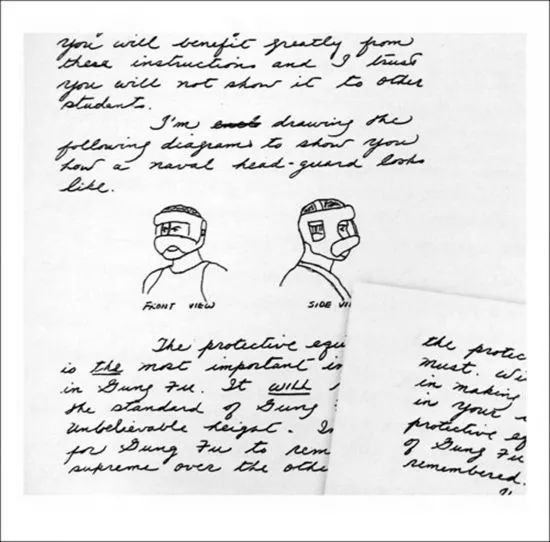 you will benefit greatly from
these instructions and I trust
you will not show it to other
students.
I'm drawing the
following diagrams to show you
how a naval head-guard looks
like.
FRONT VIEW
SIDE VI
The protective equ
is the most important i
in Gung Fu. It will
the standard of Gung
unbelievable height. I
for Gung Fu to rem
supreme over the othe
the protec
must. Wi
in making
in your
protective eq
of Gung Fu
remembered.